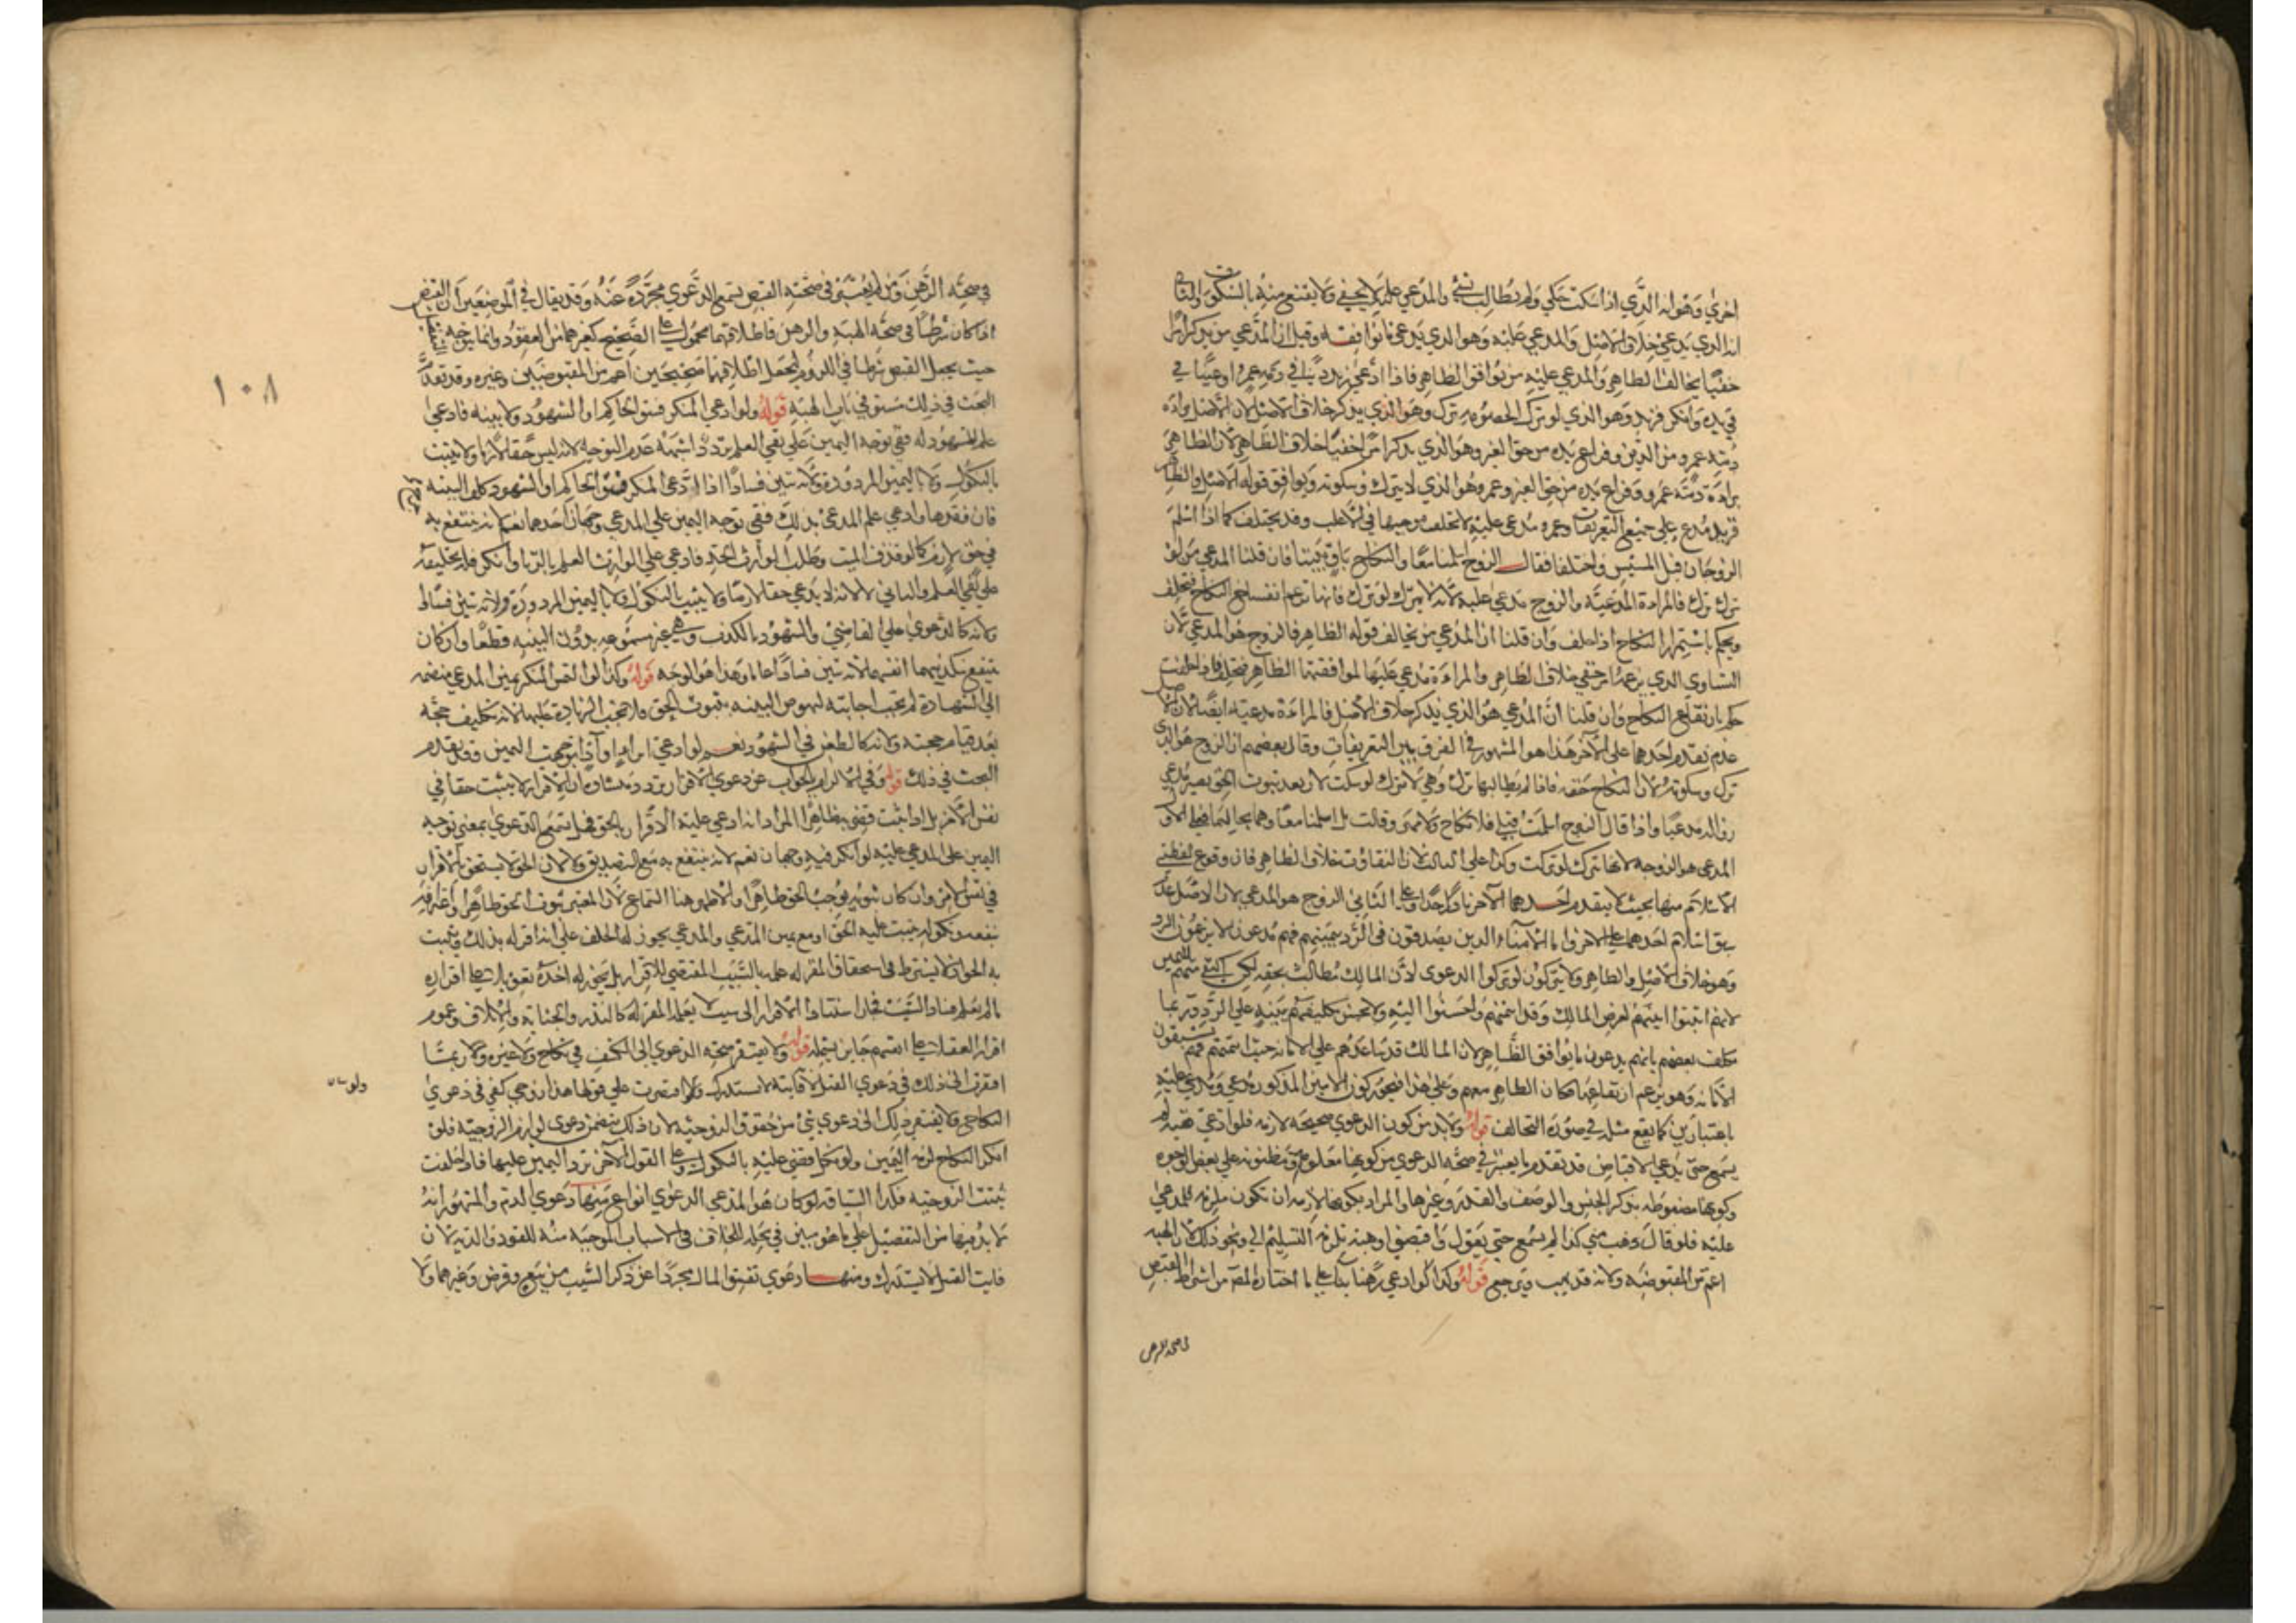 اخري وهو انه الذي اذا سكت خلي ولم يطالب بشئ والمدعي عليه لا يخلي ولا يقنع منه بالسكوت والثاني
انه الذي يدعي خلاف الاصل والمدعي عليه وهو الذي يدعي ما يوافقه وقيل ان المدعي من يذكر امرا
خفيا يخالف الظاهر والمدعي عليه من يوافق الظاهر فاذا ادعي زيد دينا في ذمة عمرو او عينا في
في يده وانكر فزيد وهو الذي لو ترك الخصومه ترك وهو الذي يذكر خلاف الاصل لان الاصل براءة
ذمته عمرو من الدين وفراغ يده من حق الغير وهو الذي يذكر امرا خفيا خلاف الظاهر لان الظاهر
براءة ذمته عمرو وفراغ يده من حق الغير وعمرو هو الذي لا يترك وسكوته ويوافق قوله الاصل والظاهر
فزيد مدع علي جميع التعريفات وعمرو مدعي عليه لا تختلف موجبها في الاغلب وقد يختلف كما اذا اسلم
الزوجان قبل المسيس واختلفا فقال الزوج اسلمنا معا والنكاح باق بيننا فان قلنا المدعي من لو
ترك ترك فالمراءة المدعية والزوج مدعي عليه لانه لا يترك لو ترك فانها تزعم انفساخ النكاح فيحلف
ويحكم باستمرار النكاح اذا حلف وان قلنا ان المدعي من يخالف قوله الظاهر فالزوج هو المدعي لان
التساوي الذي يزعمه امر خفي خلاف الظاهر والمراءة مدعي عليها لموافقتها الظاهر فتحلف فاذا حلفت
حكم بارتفاع النكاح وان قلنا ان المدعي هو الذي يذكر خلاف الاصل فالمراءة مدعية ايضا لان الاصل
عدم تقدم احدهما على الآخر هذا هو المشهور في الفرق بين التعريفات وقال بعضهم ان الزوج هو الذي
ترك وسكوته لان النكاح حقه فاذا لم يطالبها ترك وهي لا تترك لو سكت لان بعد ثبوت الحق يصير مدعي
زواله مدعيا واذا قال الزوج اسلمت قبلي فلا نكاح ولا مهر وقالت بل اسلمنا معا وهما بحالهما فعلي الاول
المدعي هو الزوجه لانها تترك لو تركت وكذا علي الثالث لان التفاوت خلاف الظاهر فان وقوع لفظتي
الاسلام منهما بحيث لا يتقدم احدهما الآخر نادر جدا وعلى الثاني الزوج هو المدعي لان الاصل عدم
سبق اسلام احدهما على الاخر واما الامناء الذين يصدقون في الرد بيمينهم فهم مدعون لانهم يزعمون الرد
وهو خلاف الاصل والظاهر ولا يتركون لو تركوا الدعوى لان المالك مطالب بحقه لكن اكتفي منهم باليمين
لانهم اثبتوا ايديهم لغرض المالك وقد ائتمنهم واحسنوا اليه ولا يحسن تكليفهم ببينه علي الرد وربما
تكلف بعضهم بانهم يدعون ما يوافق الظاهر لان المالك قد ساعدهم علي الامانه حيث ائتمنهم فهم يستبقون
الامانه وهو يزعم ارتفاعها فكان الظاهر معهم وعلي هذا فيجوز كون الامين المذكور مدعي ومدعي عليه
باعتبارين كما يقع مثله في صورة التحالف قوله ولا بد من كون الدعوي صحيحة لازمه فلو ادعي هبه لم
يسمع حتي يدعي الاقباض قد تقدم ما يعتبر في صحة الدعوي من كونها معلومه ومظنونه علي بعض الوجوه
وكونها مضبوطه بذكر الجنس والوصف والقدر وغيرها والمراد بكونها لازمه ان تكون ملزمه للمدعي
عليه فلو قال وهب مني كذا لم يسمع حتي يقول واقبضني او هبه تلزمه التسليم الي ونحو ذلك لان الهبه
اعم من المقبوضه ولانه قد يهب ويرجع قوله وكذا لو ادعي رهنا بناء علي ما اختاره المص من اشتراط القبض
في صحة الرهن
١٠٨
في صحة الرهن ومن لم يعتبر في صحته القبض يسمع الدعوي مجردة عنه وقد يقال في الموضعين ان القبض
اذا كان شرطا في صحة الهبه والرهن فاطلاقهما محمول على الصحيح كغيرهما من العقود وانما يتوجه
حيث يجعل القبض شرطا في اللزوم ليجعل اطلاقهما صحيحين اعم من المقبوضين وغيره وقد تقدم
البحث في ذلك مستوفي في باب الهبه قوله ولو ادعي المنكر فسق الحاكم او الشهود ولا بينه فادعي
علم المشهود له ففي توجه اليمين علي نفي العلم تردد اشبهه عدم التوجيه لانه ليس حقا لازما ولا يثبت
بالنكول ولا باليمين المردودة ولانه يثير فسادا اذا ادعى المنكر فسق الحاكم او الشهود كلف البينه
فان فقدها وادعي علم المدعي بذلك ففي توجه اليمين علي المدعي وجهان احدهما نعم لانه ينتفع به
في حق لازم كما لو قذف الميت وطلب الوارث الحد فادعي علي الوارث العلم بالزنا وانكر فله تحليفه
علي نفي العلم والثاني لا لانه لا يدعي حقا لازما ولا يثبت بالنكول ولا باليمين المردودة ولانه يثير فسادا
ولانه كالدعوي علي القاضي والشهود بالكذب وهي غير مسموعه بدون البينه قطعا وان كان
ينتفع بتكذيبهما انفسهما لانه يثير فسادا عاما وهذا هو الوجه قوله وكذا لو التمس المنكر يمين المدعي منضمه
الي الشهادة لم يجب اجابته لنهوض البينه بثبوت الحق ولا تجب الزيادة عليها لانه تكليف حجة
بعد قيام حجته ولانه كالطعن في الشهود نعم لو ادعي ابراءا او اداء توجهت اليمين وقد تقدم
البحث في ذلك قوله وفي الالزام بالجواب عن دعوي الاقرار تردد منشاءه ان الاقرار لا يثبت حقا في
نفس الامر بل اذا ثبت قضي به ظاهرا المراد انه ادعي عليه الاقرار بالحق فهل تسمع الدعوي بمعني توجه
اليمين على المدعي عليه لو انكر فيه وجهان نعم لانه ينتفع به مع التصديق ولا لان الحق لا يستحق بالاقرار
في نفس الامر وان كان ثبوته يوجب الحق ظاهرا والاظهر هنا السماع لان المعتبر ثبوت الحق ظاهرا واعترافه
ينفعه ونكوله يثبت عليه الحق او مع يمين المدعي والمدعي يجوز له الحلف علي انه اقر له بذلك ويثبت
به الحق اذ لا يشترط في استحقاق المقر له علمه بالسبب المقتضي للاقرار بل يجوز له اخذه تعويلا على اقراره
ما لم يعلم فساد السبب لجواز استناد الاقرار الى سبب لا يعلمه المقر له كالنذر والجنايه والاتلاف وعموم
اقرار العقلاء على انفسهم جايز يشمله قوله ولا يفتقر صحة الدعوي الى الكشف في نكاح ولا غيره ولا ربما
افتقرت الى ذلك في دعوي القتل لان فايته لا تستدرك ولو اقتصرت علي قولها هذا زوجي كفي في دعوي
النكاح ولا يفتقر ذلك الى دعوي شئ من حقوق الزوجيه لان ذلك يتضمن دعوى لوازم الزوجيه فلو
انكر النكاح لزمه اليمين ولو نكل قضي عليه بالنكول وعلى القول الآخر ترد اليمين عليها فاذا حلفت
ثبتت الزوجيه فكذا السياقه لو كان هو المدعي الدعوي انواع منها دعوي الدم والمشهور انه
لا بد فيها من التفصيل علي ما هو مبين في محله للخلاف في الاسباب الموجبه منه للقود والديه لان
فايت القتل لا يستدرك ومنها دعوي نفس المال مجردا عن ذكر السبب من بيع وقرض وغيرهما ولا